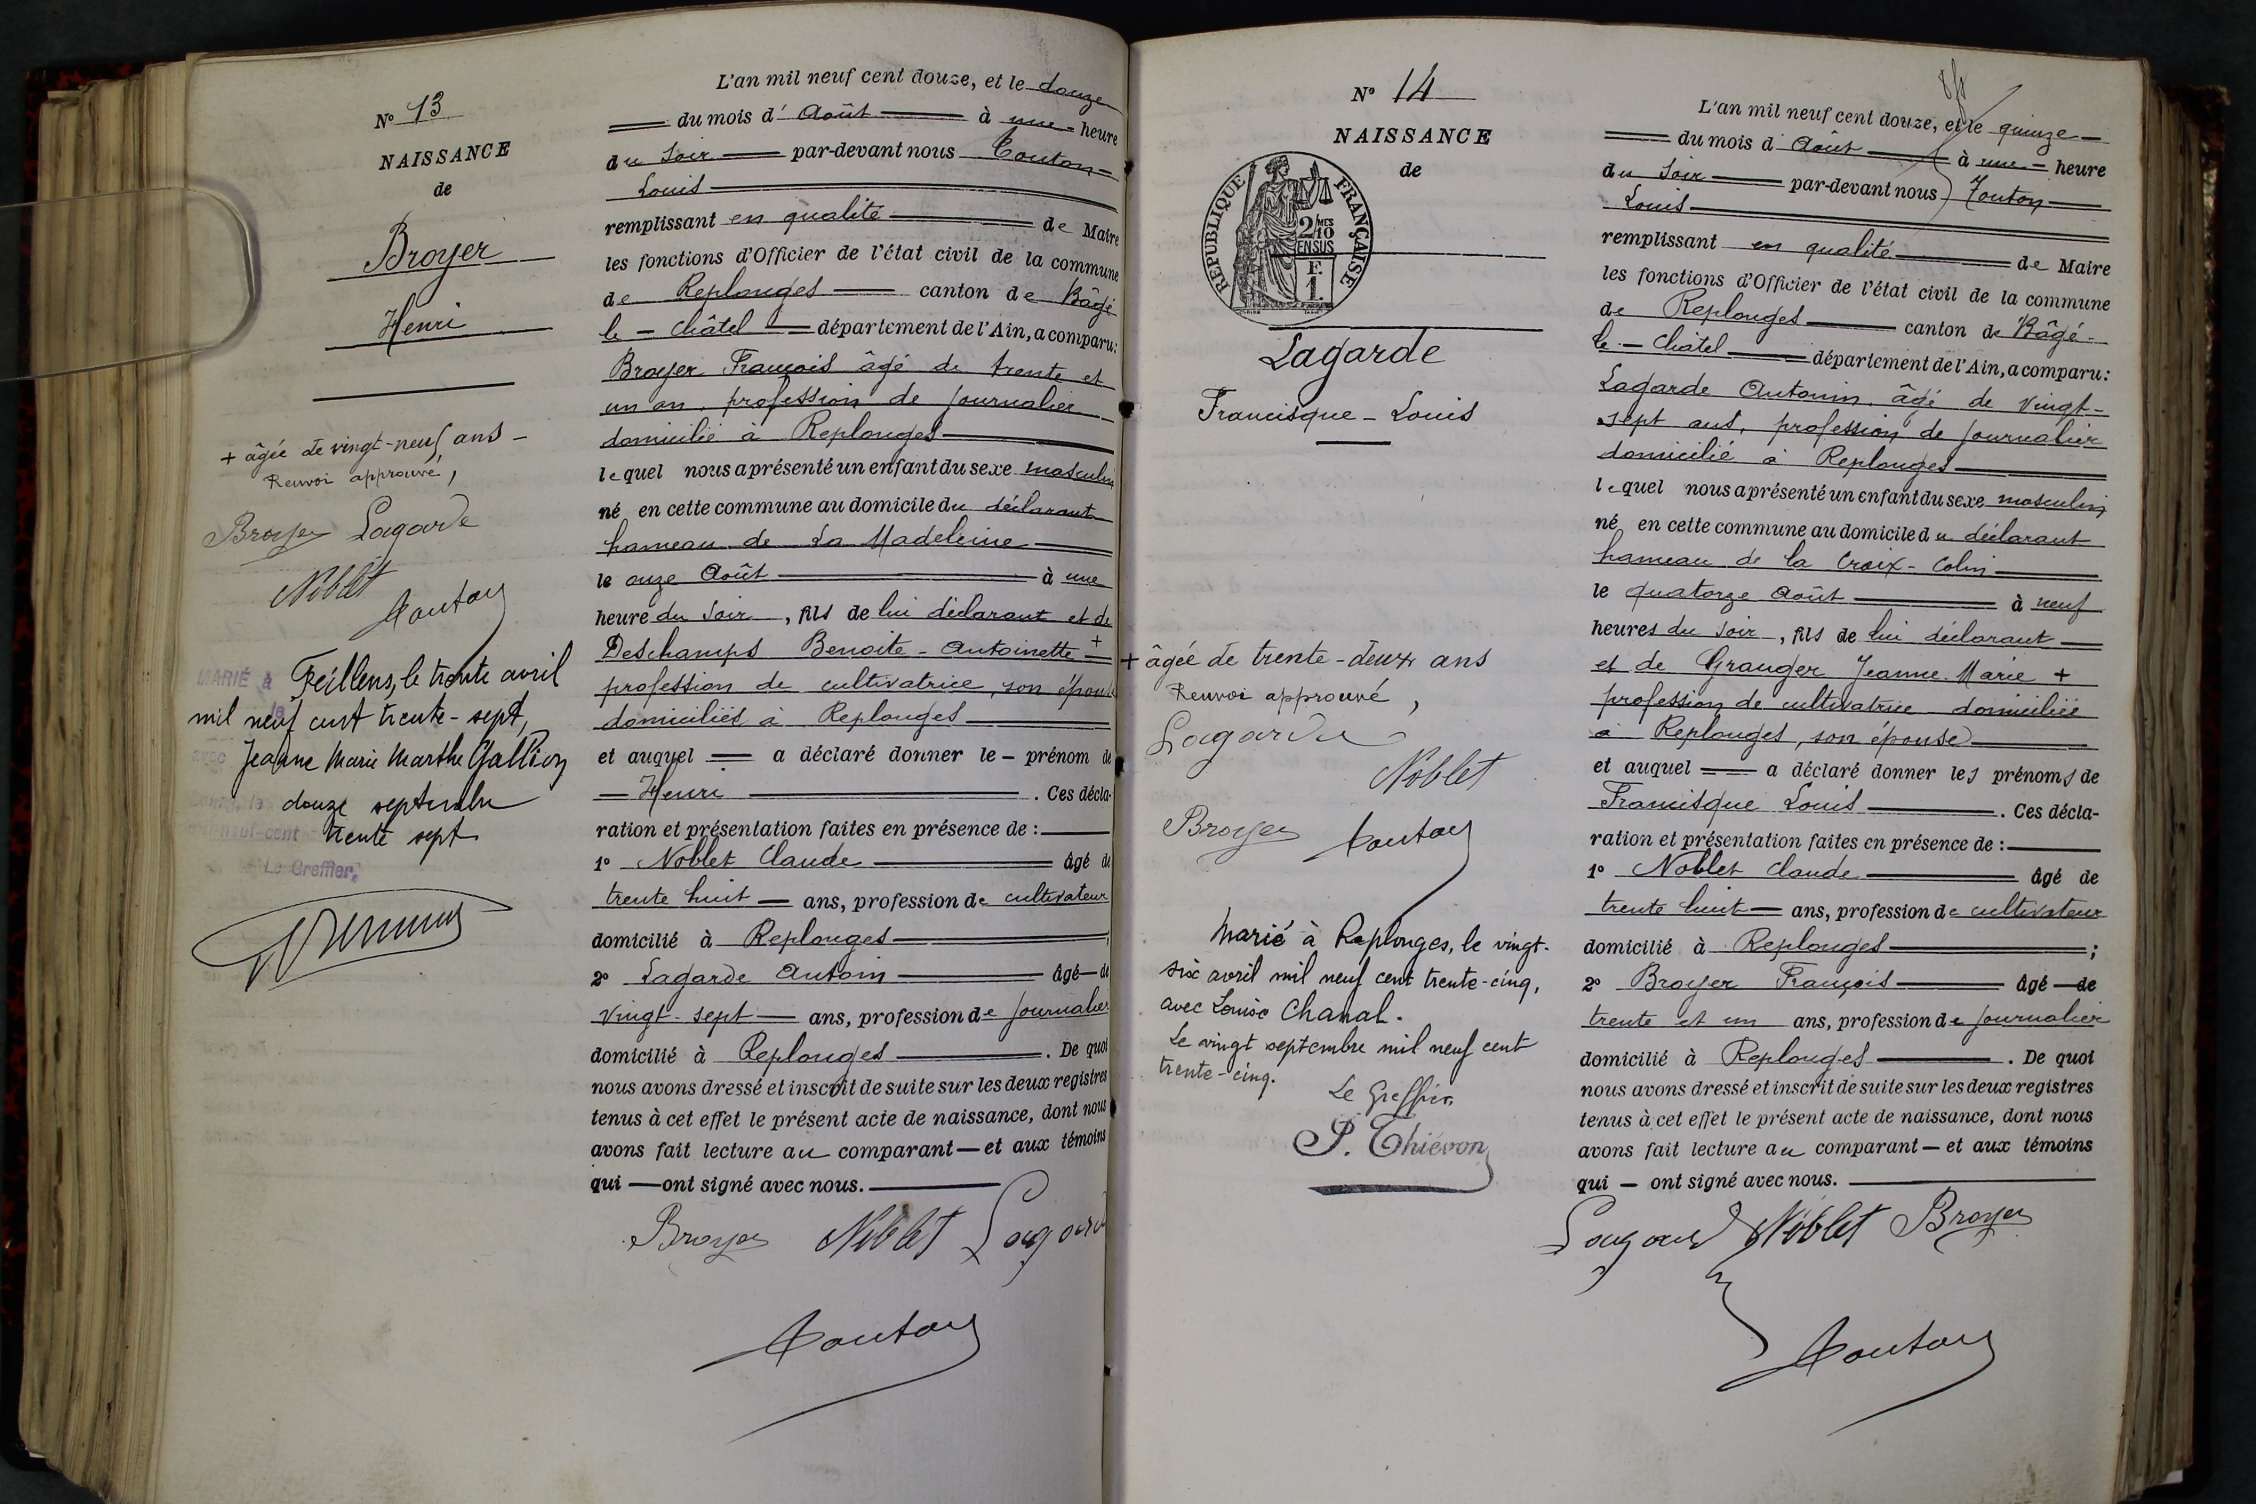 N° 13
NAISSANCE
de
Broyer
Henri
+ âgée de vingt-neuf ans -
Renvoi approuvé,
Broyer Lagarde
Noblet
Couton
MARIÉ à Feillens, le trente avril
mil neuf cent trente-sept,
avec Jeanne Marie Marthe Gallion
douze septembre
neuf-cent trente sept
Le Greffier,
L'an mil neuf cent douze, et le douze
du mois d'Août à une heure
du soir par-devant nous Couton
Louis
remplissant en qualité de Maire
les fonctions d'Officier de l'état civil de la commune
de Replonges canton de Bâgé
le-Châtel département de l'Ain, a comparu:
Broyer François âgé de trente et
un an, profession de journalier
domicilié à Replonges
lequel nous a présenté un enfant du sexe masculin
né en cette commune au domicile du déclarant
hameau de La Madeleine
le onze Août à une
heure du soir, fils de lui déclarant et de
Deschamps Benoite-Antoinette +
profession de cultivatrice, son épouse
domiciliés à Replonges
et auquel a déclaré donner le - prénom de
- Henri . Ces décla-
ration et présentation faites en présence de :
1° Noblet Claude âgé de
trente huit ans, profession de cultivateur
domicilié à Replonges ;
2° Lagarde Antoin âgé de
vingt-sept ans, profession de journalier
domicilié à Replonges . De quoi
nous avons dressé et inscrit de suite sur les deux registres
tenus à cet effet le présent acte de naissance, dont nous
avons fait lecture au comparant — et aux témoins
qui — ont signé avec nous.
Broyer Noblet Lagarde
Couton
N° 14
NAISSANCE
de
REPUBLIQUE FRANÇAISE
2/10
MES
EN SUS
F.
1.
Lagarde
Francisque - Louis
+ âgée de trente-deux ans
Renvoi approuvé,
Lagarde
Noblet
Broyer Couton
Marié à Replonges, le vingt-
six avril mil neuf cent trente-cinq,
avec Louise Chanal.
Le vingt septembre mil neuf cent
trente-cinq.
Le Greffier
P. Thiévon
L'an mil neuf cent douze, et le quinze
du mois d'Août à une heure
du soir par-devant nous Couton
Louis
remplissant en qualité de Maire
les fonctions d'Officier de l'état civil de la commune
de Replonges canton de Bâgé-
le-Châtel département de l'Ain, a comparu:
Lagarde Antonin âgé de vingt-
sept ans, profession de journalier
domicilié à Replonges
lequel nous a présenté un enfant du sexe masculin
né en cette commune au domicile du déclarant
hameau de la Croix-Colin
le quatorze Août à neuf
heures du soir, fils de lui déclarant
et de Granger Jeanne-Marie +
profession de cultivatrice domiciliée
à Replonges, son épouse
et auquel a déclaré donner les prénoms de
Francisque Louis . Ces décla-
ration et présentation faites en présence de :
1° Noblet Claude âgé de
trente huit ans, profession de cultivateur
domicilié à Replonges ;
2° Broyer François âgé de
trente et un ans, profession de journalier
domicilié à Replonges . De quoi
nous avons dressé et inscrit de suite sur les deux registres
tenus à cet effet le présent acte de naissance, dont nous
avons fait lecture au comparant — et aux témoins
qui — ont signé avec nous.
Lagarde Noblet Broyer
Couton